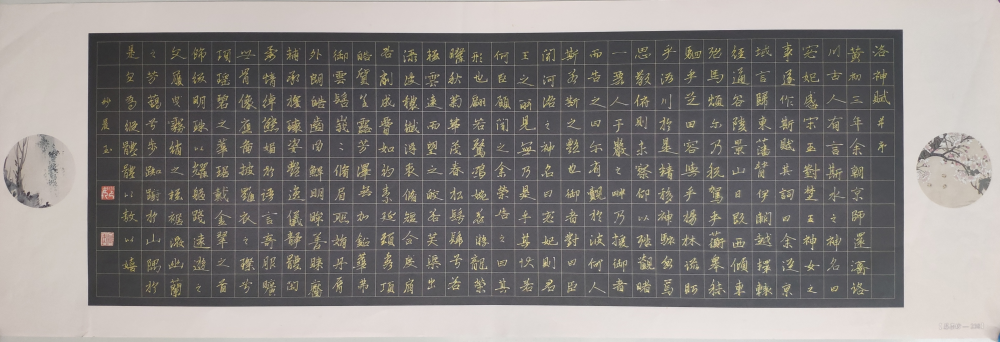 洛神賦并序
黄初三年余朝京師還濟洛
川古人有言斯水之神名曰
宓妃感宋玉對楚王神女之
事遂作斯賦其詞曰余從京
域言歸東藩背伊闕越轘轅
經通谷陵景山日既西傾車
殆馬煩尔乃税駕乎蘅皋秣
駟乎芝田容與乎楊林流眄
乎洛川於是精移神駭忽焉
思散俯則未察仰以殊觀睹
一麗人于巖之畔乃援御者
而告之曰尔有覿於彼何人
斯若斯之艷也御者對曰臣
聞河洛之神名曰宓妃則君
王之所見無乃是乎其狀若
何臣願聞之余告之曰其
形也翩若驚鴻婉若遊龍榮
曜秋菊華茂春松髣髴兮若
雲遠而望之皎若芙渠出
渌波穠纖得衷修短合度肩
若削成腰如約素延頸秀項
皓質呈露芳澤無加鉛華弗
御雲髻峩峩修眉聯娟丹脣
外朗皓齒内鮮明眸善睞靨
輔承權瓌姿艷逸儀靜體閑
柔情綽態媚於語言奇服曠
世骨像應圖披羅衣之璨兮
珥瑶碧之華琚戴金翠之首
飾綴明珠以耀軀踐遠遊之
文履曳霧綃之輕裾微幽蘭
之芳藹兮步踟蹰於山隅於
是忽焉縱體以遨以嬉